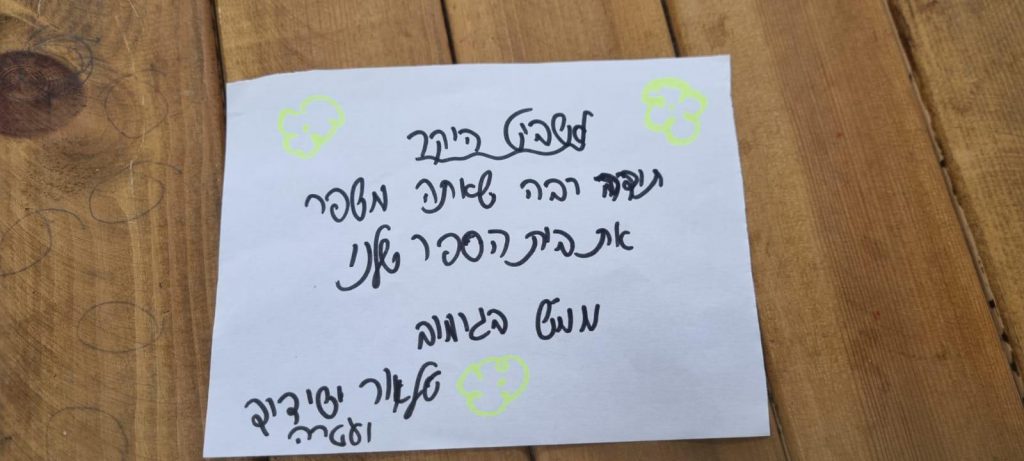 לשביט היקר
תודה רבה שאתה משפר
את בית הספר שלנו
ממש בגימוב
טלאור ידידיה
ועטרה